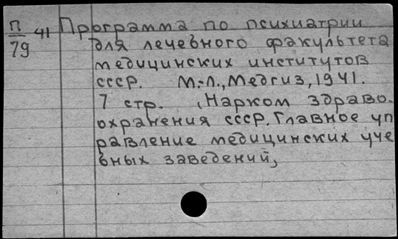 П/79 41 Программа по психиатрии
для лечебного факультета
медицинских институтов
СССР. М.-Л., Медгиз, 1941.
7 стр. (Нарком здраво.
охранения СССР. Главное уп
равление медицинских уче
бных заведений,